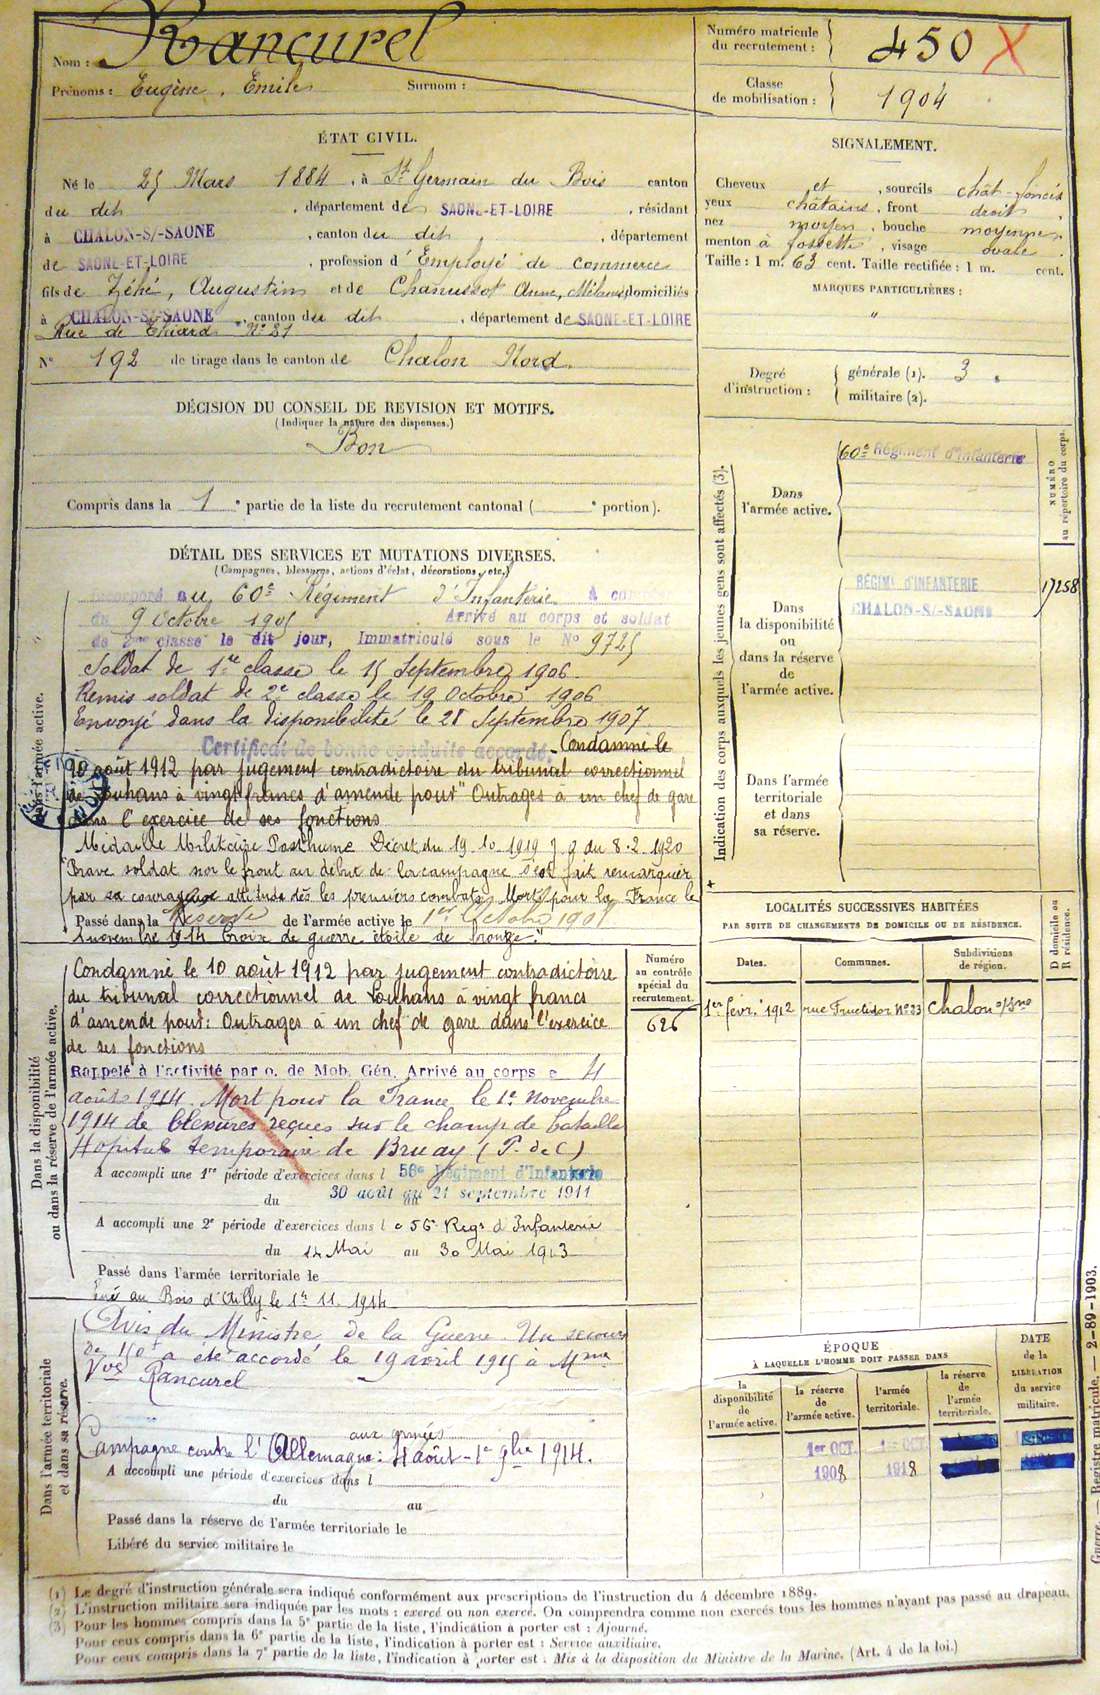 Nom : Rancurel
Prénoms : Eugène, Emile Surnom :
Numéro matricule du recrutement : 450 X
Classe de mobilisation : 1904
ÉTAT CIVIL.
Né le 25 Mars 1884, à St Germain du Bois canton
du dit, département de SAONE-ET-LOIRE, résidant
à CHALON-S/-SAONE, canton du dit, département
de SAONE-ET-LOIRE, profession d'Employé de commerce
fils de Zéhé, Augustin et de Chanussot Anne, Mélanie, domiciliés
à CHALON-S/-SAONE, canton du dit, département de SAONE-ET-LOIRE
Rue de Thiard N° 21
N° 192 de tirage dans le canton de Chalon Nord.
SIGNALEMENT.
Cheveux et, sourcils chât-foncés
yeux châtains, front droit,
nez moyen, bouche moyenne,
menton à fossette, visage ovale.
Taille : 1 m. 63 cent. Taille rectifiée : 1 m. cent.
MARQUES PARTICULIÈRES :
"
Degré d'instruction : générale (1). 3.
militaire (2).
DÉCISION DU CONSEIL DE REVISION ET MOTIFS.
(Indiquer la nature des dispenses.)
Bon
Compris dans la 1e partie de la liste du recrutement cantonal ( e portion).
DÉTAIL DES SERVICES ET MUTATIONS DIVERSES.
(Campagnes, blessures, actions d'éclat, décorations, etc.)
Dans l'armée active.
Incorporé au 60e Régiment d'Infanterie à compter
du 9 Octobre 1905 Arrivé au corps et soldat
de 2me classe le dit jour, Immatriculé sous le N° 9725
Soldat de 1re classe le 15 Septembre 1906.
Remis soldat de 2e classe le 19 Octobre 1906
Envoyé dans la disponibilité le 28 Septembre 1907.
Certificat de bonne conduite accordé. Condamné le
10 août 1912 par jugement contradictoire du tribunal correctionnel
de Louhans à vingt francs d'amende pour "Outrages à un chef de gare
dans l'exercice de ses fonctions
Médaille Militaire Posthume Décret du 19.10.1919 J.O du 8.2.1920
"Brave soldat sur le front au début de la campagne s'est fait remarquer
par sa courageuse attitude dès les premiers combats. Mort pour la France le
Passé dans la Réserve de l'armée active le 1er Octobre 1908
1 novembre 1914 Croix de guerre étoile de bronze."
Dans la disponibilité ou dans la réserve de l'armée active.
Condamné le 10 août 1912 par jugement contradictoire
du tribunal correctionnel de Louhans à vingt francs
d'amende pour : Outrages à un chef de gare dans l'exercice
de ses fonctions
Rappelé à l'activité par o. de Mob. Gén. Arrivé au corps le 4
août 1914. Mort pour la France le 1er Novembre
1914 de blessures reçues sur le champ de bataille
Hôpital temporaire de Bruay (P. de C)
A accompli une 1re période d'exercices dans l 56e Régiment d'Infanterie
du 30 août au 21 septembre 1911
A accompli une 2e période d'exercices dans l e 56e Regt d'Infanterie
du 14 Mai au 30 Mai 1913
Passé dans l'armée territoriale le
Tué au Bois d'Ailly le 1er 11. 1914
Numéro au contrôle spécial du recrutement.
626
Dans l'armée territoriale et dans sa réserve.
Avis du Ministre de la Guerre. Un secours
de 150f a été accordé le 19 avril 1915 à Mme
Vve Rancurel
aux armées
Campagne contre l'Allemagne : 4 août - 1er 9bre 1914.
A accompli une période d'exercices dans l
du au
Passé dans la réserve de l'armée territoriale le
Libéré du service militaire le
Indication des corps auxquels les jeunes gens sont affectés (3).
NUMÉRO au répertoire du corps.
Dans l'armée active.
60e Régiment d'Infanterie
Dans la disponibilité ou dans la réserve de l'armée active.
RÉGIMt D'INFANTERIE
CHALON-S/-SAONE
17258
Dans l'armée territoriale et dans sa réserve.
LOCALITÉS SUCCESSIVES HABITÉES
PAR SUITE DE CHANGEMENTS DE DOMICILE OU DE RÉSIDENCE.
Dates. Communes. Subdivisions de région. D domicile ou R résidence.
1er févr. 1912 rue Fructidor N° 23 Chalon s/Sne
ÉPOQUE
À LAQUELLE L'HOMME DOIT PASSER DANS
DATE de la LIBÉRATION du service militaire.
la disponibilité de l'armée active.
la réserve de l'armée active.
l'armée territoriale.
la réserve de l'armée territoriale.
1er OCT. 1er OCT.
1908 1918
Guerre. — Registre matricule. — 2-89-1903.
(1) Le degré d'instruction générale sera indiqué conformément aux prescriptions de l'instruction du 4 décembre 1889.
(2) L'instruction militaire sera indiquée par les mots : exercé ou non exercé. On comprendra comme non exercés tous les hommes n'ayant pas passé au drapeau.
(3) Pour les hommes compris dans la 5e partie de la liste, l'indication à porter est : Ajourné.
Pour ceux compris dans la 6e partie de la liste, l'indication à porter est : Service auxiliaire.
Pour ceux compris dans la 7e partie de la liste, l'indication à porter est : Mis à la disposition du Ministre de la Marine. (Art. 4 de la loi.)